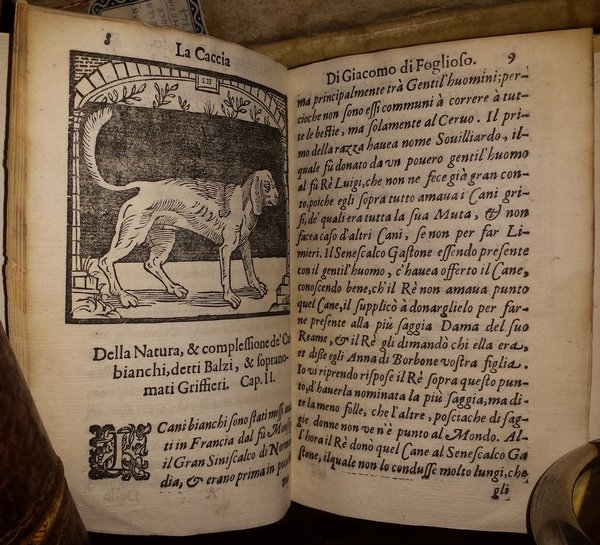 8
La Caccia
Della Natura, & complessione de' Ca
bianchi, detti Balzi, & sopranomati
Griffieri. Cap. II.
I Cani bianchi sono stati messi
ti in Francia dal fù
il Gran Siniscalco di Norma
dia, & erano prima in poca
Di Giacomo di Foglioso. 9
ma principalmente trà Gentil'huomini; per-
cioche non sono essi communi à correre à tut-
te le bestie, ma solamente al Ceruo. Il pri-
mo della razza hauea nome Souilliardo, il-
quale fù donato da vn pouero gentil'huomo
al fù Rè Luigi, che non ne fece già gran con-
to, poiche egli sopra tutto amaua i Cani gri-
si, de' quali era tutta la sua Muta, & non
facea caso d'altri Cani, se non per far Li-
mieri. Il Senescalco Gastone essendo presente
con il gentil'huomo, c'hauea offerto il Cane,
conoscendo bene, ch'il Rè non amaua punto
quel Cane, il supplicò à donarglielo per far-
ne presente alla più saggia Dama del suo
Reame, & il Rè gli dimandò chi ella era,
et disse egli Anna di Borbone vostra figlia.
Io vi riprendo rispose il Rè sopra questo pun-
to, d'hauerla nominata la più saggia, ma di-
te la meno folle, che l'altre, posciache di sag-
gie donne non ve n'è punto al Mondo. Al-
l'hora il Rè donò quel Cane al Senescalco Ga
stone, ilquale non lo condusse molto lungi, che
gli